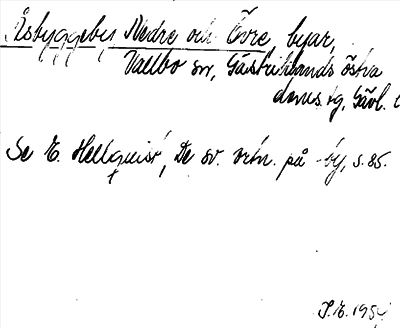 Åsbyggeby, Nedre och Övre, byar,
Valbo sn, Gästriklands östra
doms.sg, Gävl. l
Se E. Hellquist, De sv. ortn. på -by, s. 85.
J.E. 195